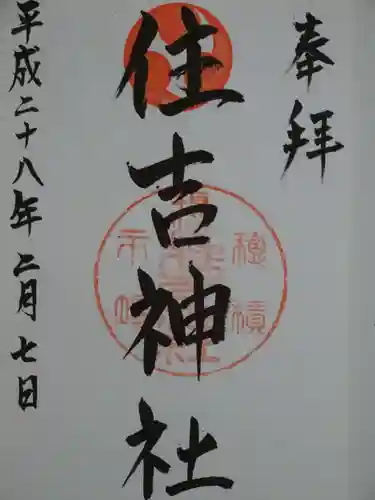 奉拝
住吉神社
平成二十八年二月七日